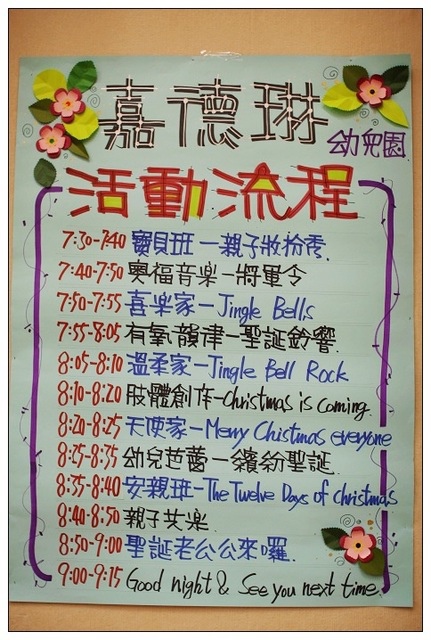 嘉德琳
幼兒園
活動流程
7:30-7:40 寶貝班－親子妝扮秀.
7:40-7:50 奧福音楽－將軍令
7:50-7:55 喜楽家－Jingle Bells
7:55-8:05 有氧韻律－聖誕鈴響.
8:05-8:10 溫柔家－Jingle Bell Rock
8:10-8:20 肢體創作－Christmas is coming.
8:20-8:25 天使家－Merry Chistmas everyone
8:25-8:35 幼兒芭蕾－繽紛聖誕.
8:35-8:40 安親班－The Twelve Days of christmas
8:40-8:50 親子共楽.
8:50-9:00 聖誕老公公來囉.
9:00-9:15 Good night & See you next time.